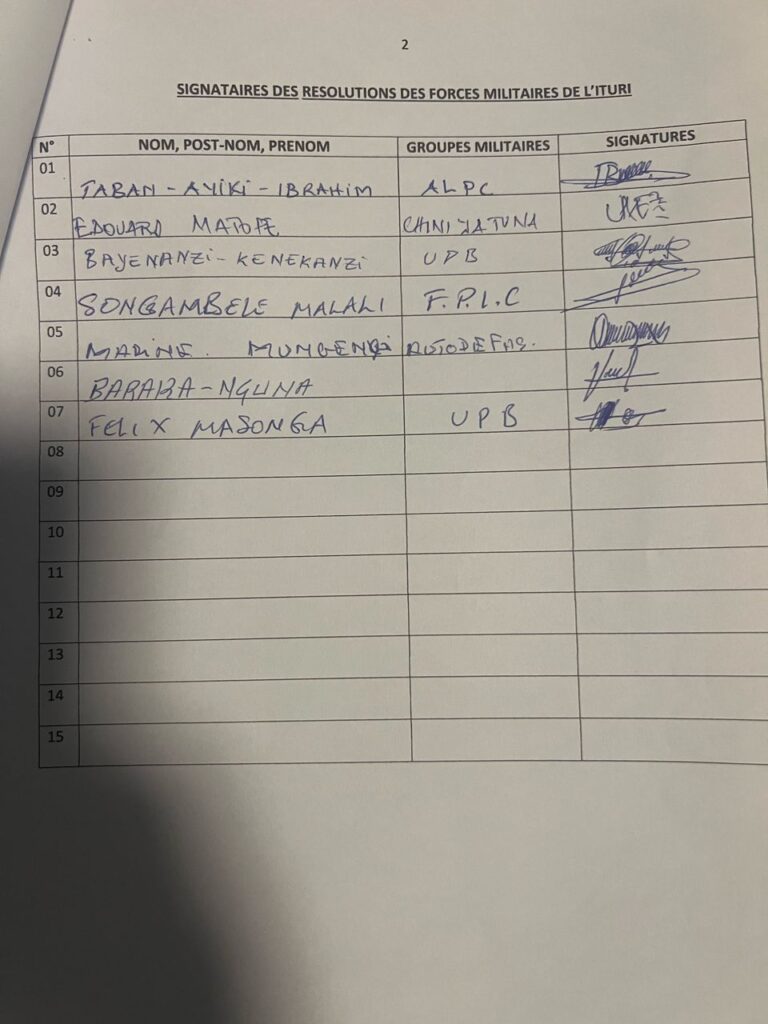 2
SIGNATAIRES DES RESOLUTIONS DES FORCES MILITAIRES DE L'ITURI
N° NOM, POST-NOM, PRENOM GROUPES MILITAIRES SIGNATURES
01 TABAN - AYIKI - IBRAHIM ALPC
02 EDOUARD CHINI YA TUNA
03 BAYENANZI - KENEKANZI UPB
04 SONGAMBELE MALALI F.P.I.C
05 MADINE.
06 BARAKA - NGUNA
07 FELIX MASONGA UPB
08
09
10
11
12
13
14
15